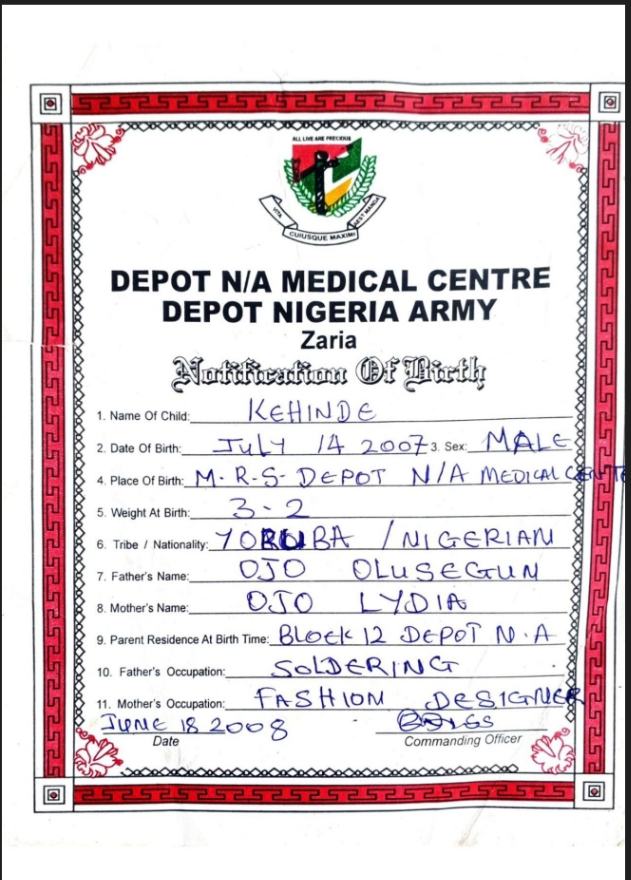 ALL LIVE ARE PRECIOUS
VITA CUIUSQUE MAXIMI AEST MANDA
DEPOT N/A MEDICAL CENTRE
DEPOT NIGERIA ARMY
Zaria
Notification Of Birth
1. Name Of Child: KEHINDE
2. Date Of Birth: JULY 14 2007 3. Sex: MALE
4. Place Of Birth: M.R.S. DEPOT N/A MEDICAL CENTE
5. Weight At Birth: 3.2
6. Tribe / Nationality: YORUBA / NIGERIAN
7. Father's Name: OJO OLUSEGUN
8. Mother's Name: OJO LYDIA
9. Parent Residence At Birth Time: BLOCK 12 DEPOT N.A
10. Father's Occupation: SOLDERING
11. Mother's Occupation: FASHION DESIGNER
JUNE 18 2008
Date Commanding Officer